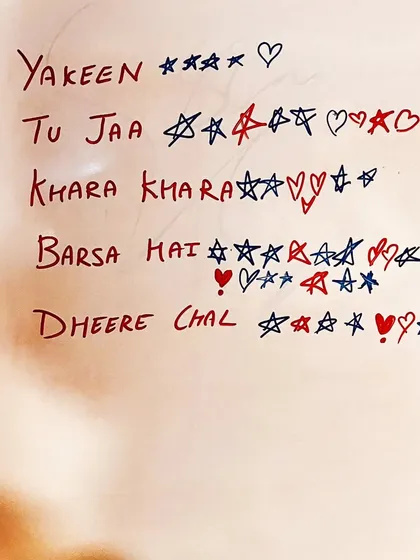 YAKEEN
TU JAA
KHARA KHARA
BARSA HAI
DHEERE CHAL